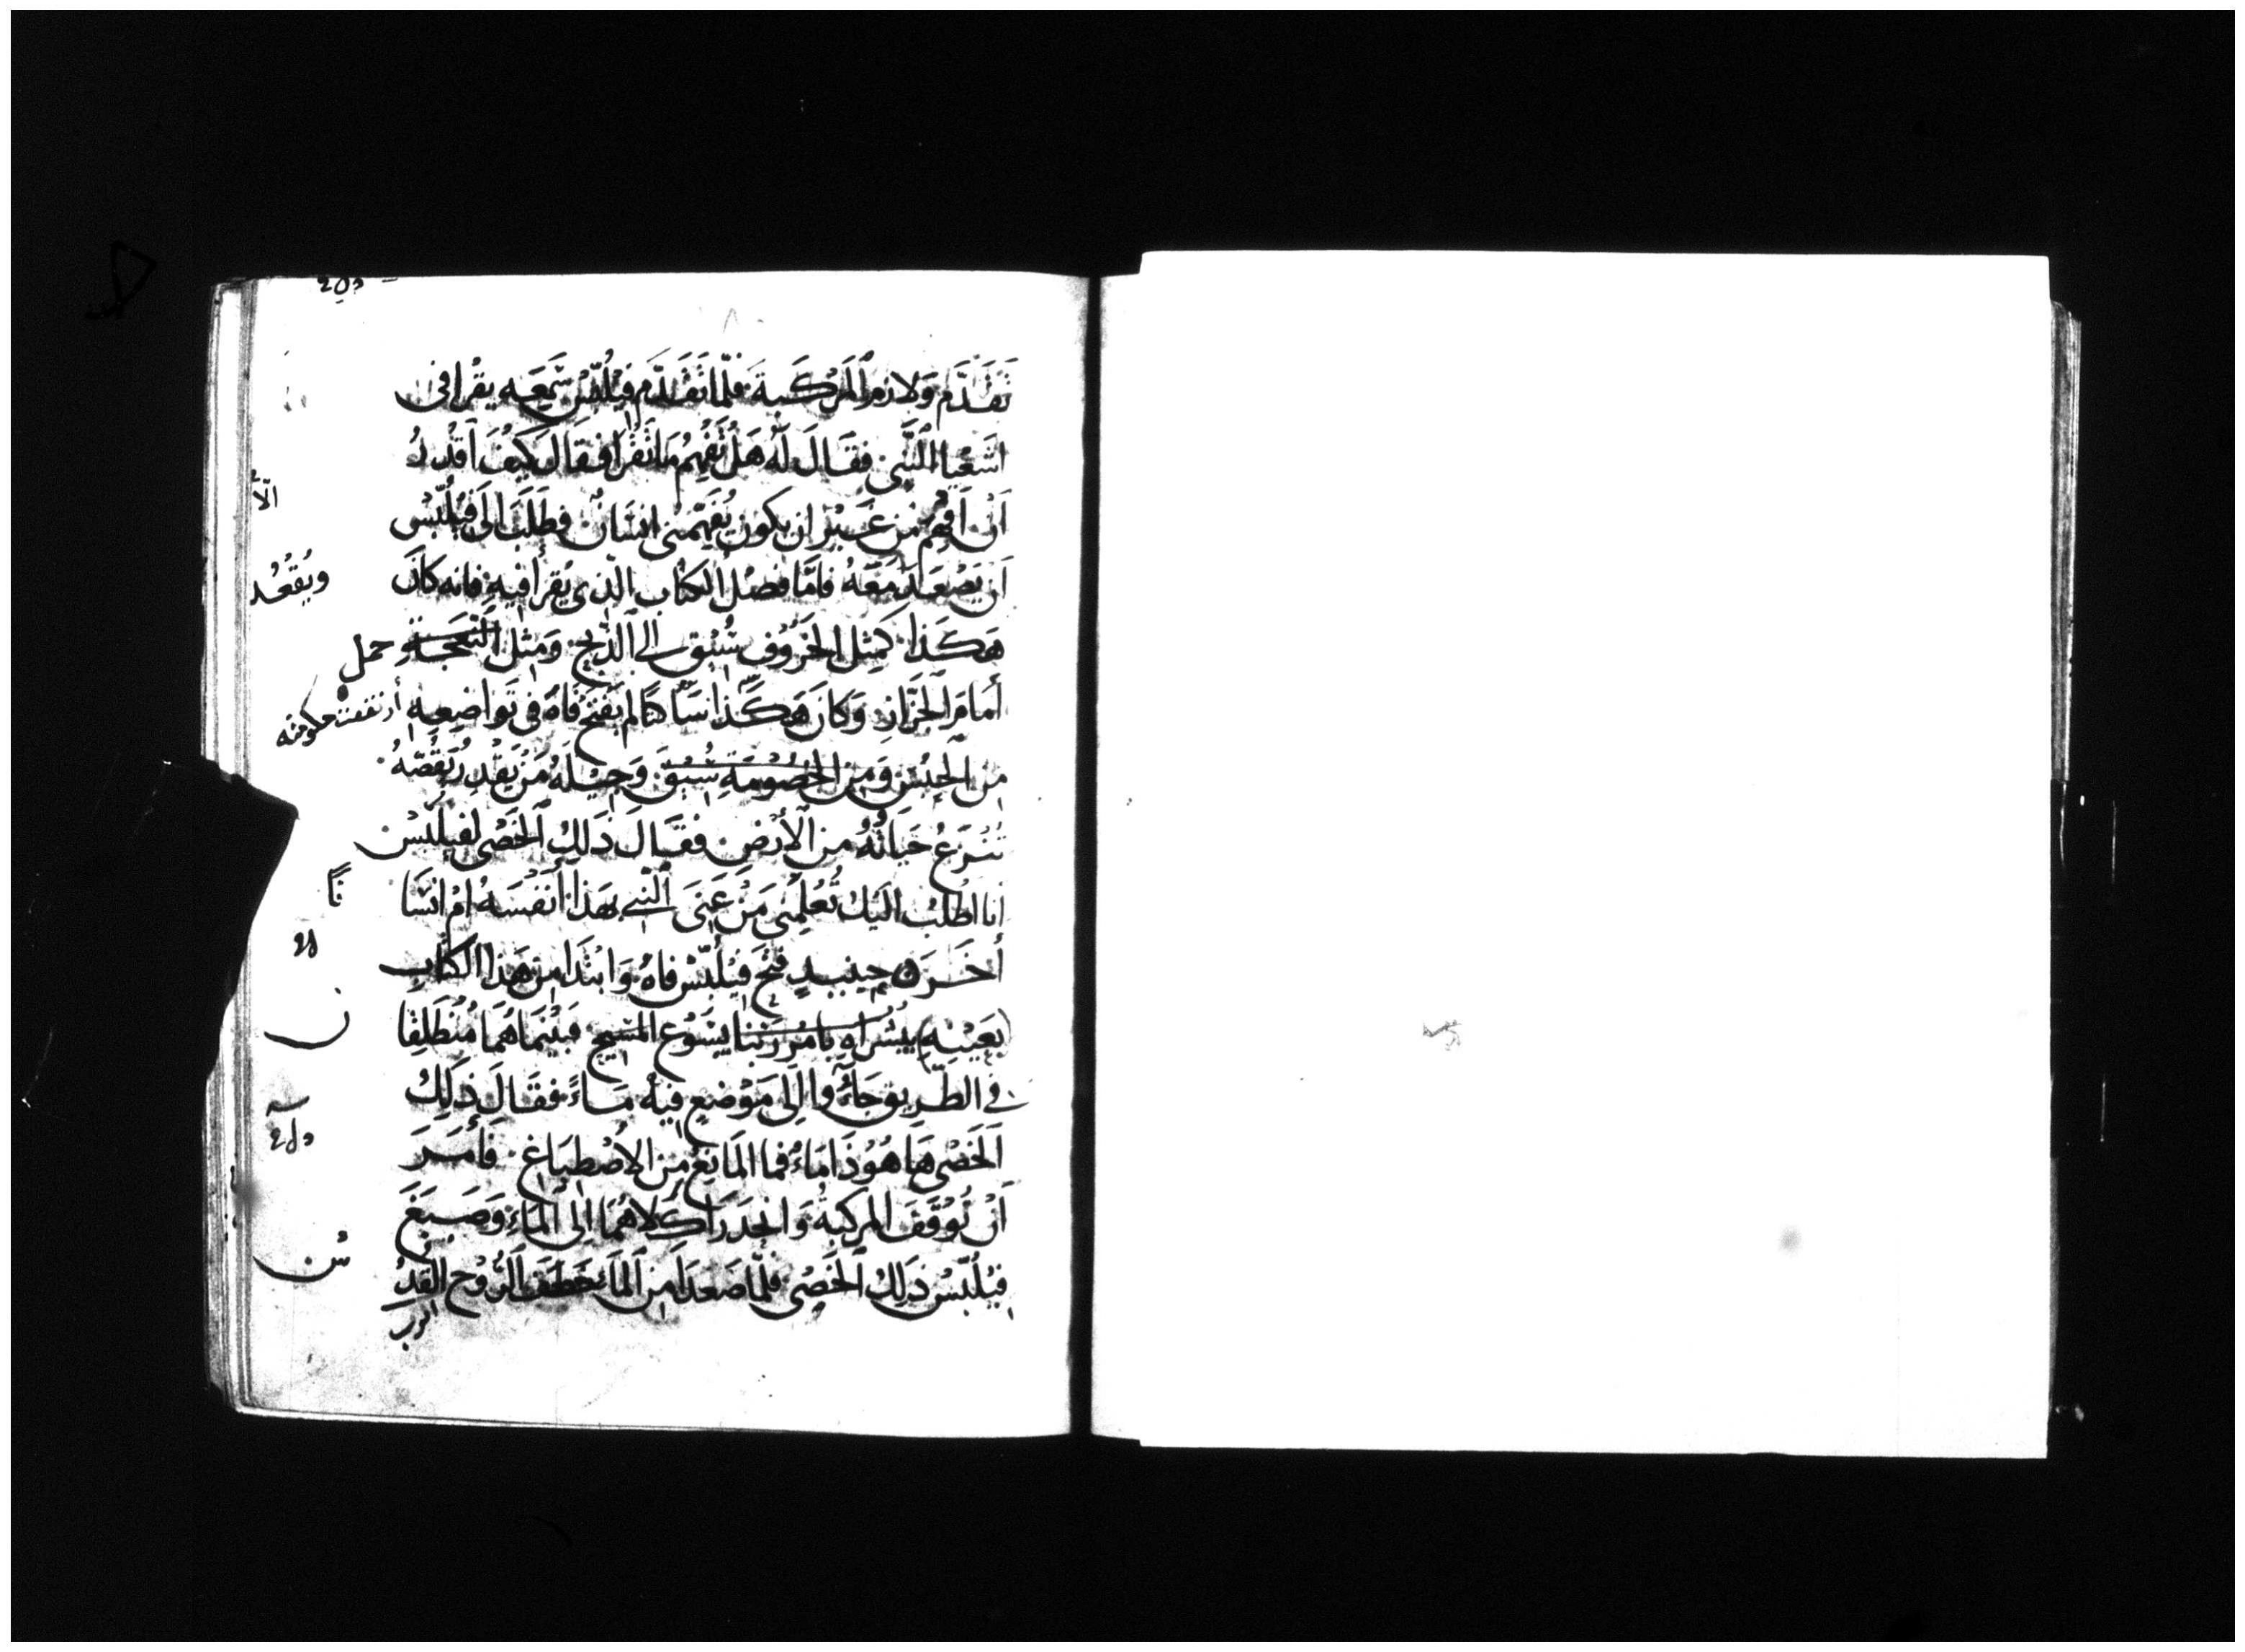 تَقَدَّم وَلازم المَرْكَبة فلمّا تَقَدَّم فيْلُبّسْ سَمِعَه يقرا فى
اشَعْيا النَّبى فقَالَ لَه هَلْ تَفْهم مَا تَقْرَا فقال كَيْفَ أقْدرُ
أن أفهَم مِن غَيْر ان يكون يُفهّمنى انسَانٌ فطَلَبَ الَى فيْلُبّسْ
الّا
أن يَصْعَد مَعَهُ فامّا فصْلُ الكتاب الّذى يُقرأ فيهِ فانه كانَ
ويُقعُد
هَكَذا كَمثِل الخَرُوف سُيْق الى الذّبح وَمثل النَّعجَةِ
حمل
أمَامَ الجَزّاز وَكانَ هَكَذا سَاكتًا لم يَفتَح فَاهُ فى تَواضِعِهِ
أرتفعت حكومته
مِن الحَبْسِ وَمِن الخصُومَةِ سُيْقَ وَجِيْلَهُ مَنْ يَقْدِرُ يَقُصّهُ
تُنْزَعُ حَيَاتُهُ من الأَرْض فقَالَ ذَلِكَ الخَصْى لفيلُبّسْ
انا اطْلُبُ اليْك تُعْلِمْنى مَنْ عَنَى النّبى بهَذا أنفْسَهُ امْ انسَا
نًا
أخَر حِينيدٍ فتَح فيْلُبّسْ فاهُ وَابْتَدَا مِن هَذا الكتاب
بعَيْنِهِ يبُشراه بامْر رَبّنا يسُوْع المسِيح فبَيْنمَا هُمَا مُنطَلِقا
ن
فى الطّريق جَاءُوا الَى مَوْضعٍ فيهُ مَاءً فقَالَ ذلِكَ
الخَصْى هَا هُوَ ذَا مَاءٌ فما المَانِعُ مِن الاصْطِبَاغ فأمَرَ
أنْ تُوْقَفَ المركبَةُ وَانحدَرَا كلاهُمَا الى المَاءِ وَصَبَغَ
فيْلُبّسُ ذلِكَ الخَصْى فلمّا صَعَدَا مِن المَاءِ خَطفَ الرُّوْح القدُ
س
الرب